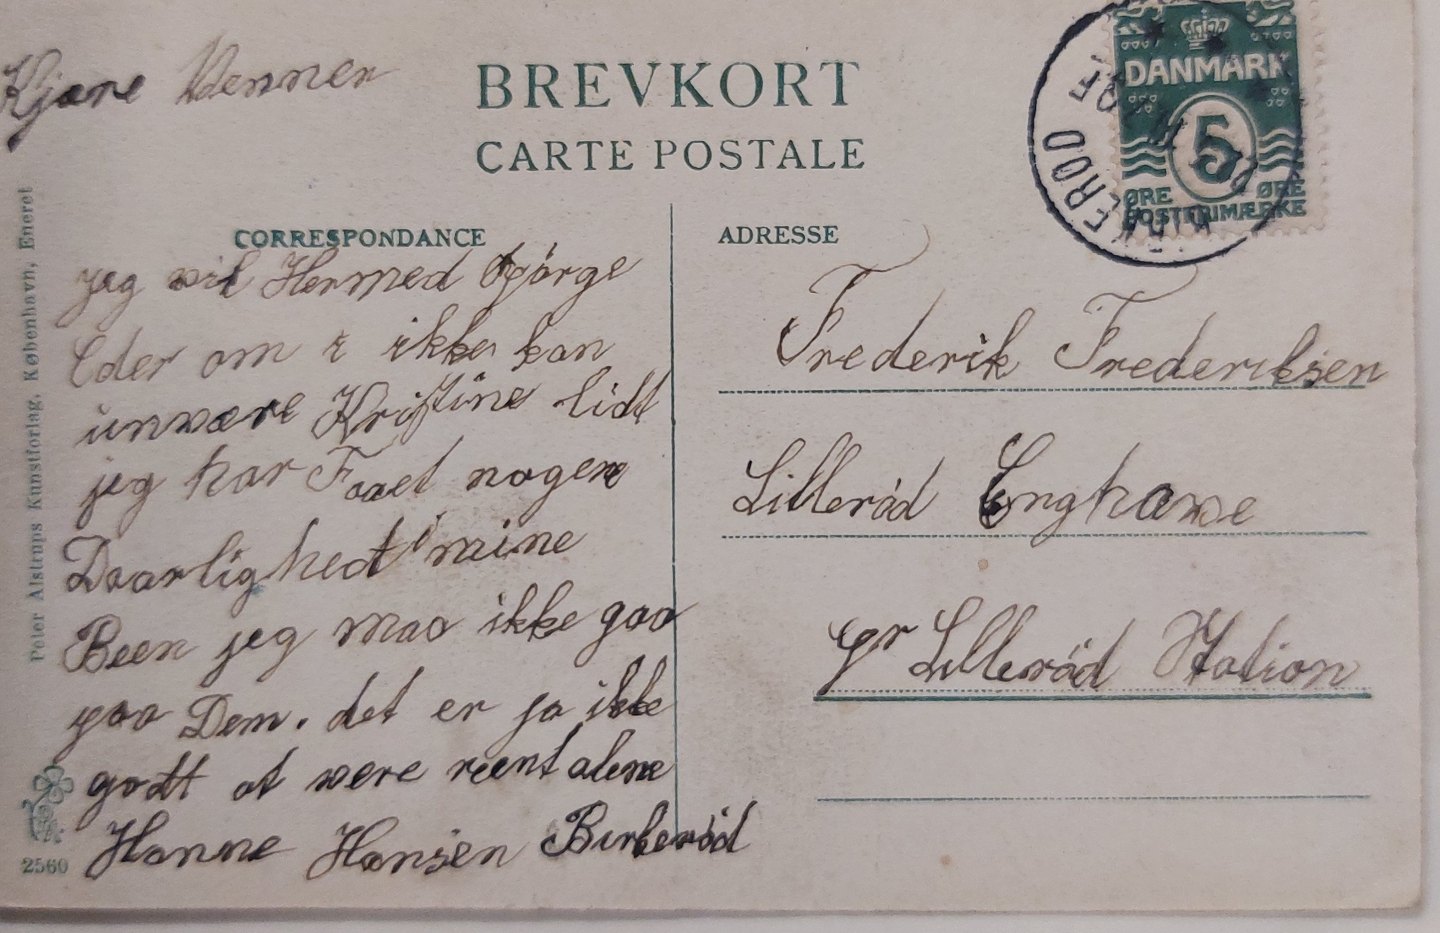 Kjære Venner
BREVKORT
CARTE POSTALE
DANMARK
5
ØRE ØRE
POSTFRIMÆRKE
BIRKERØD
CORRESPONDANCE
jeg vil Hermed Spørge
Eder om i ikke kan
unvære Kristine lidt
jeg har Faaet nogen
Daarlighed i mine
Been jeg maa ikke gaa
paa Dem. det er ja ikke
godt at være reent alene
Hanne Hansen Birkerød
ADRESSE
Frederik Frederiksen
Lillerød Enghave
pr Lillerød Station
Peter Alstrups Kunstforlag, København, Eneret
2560